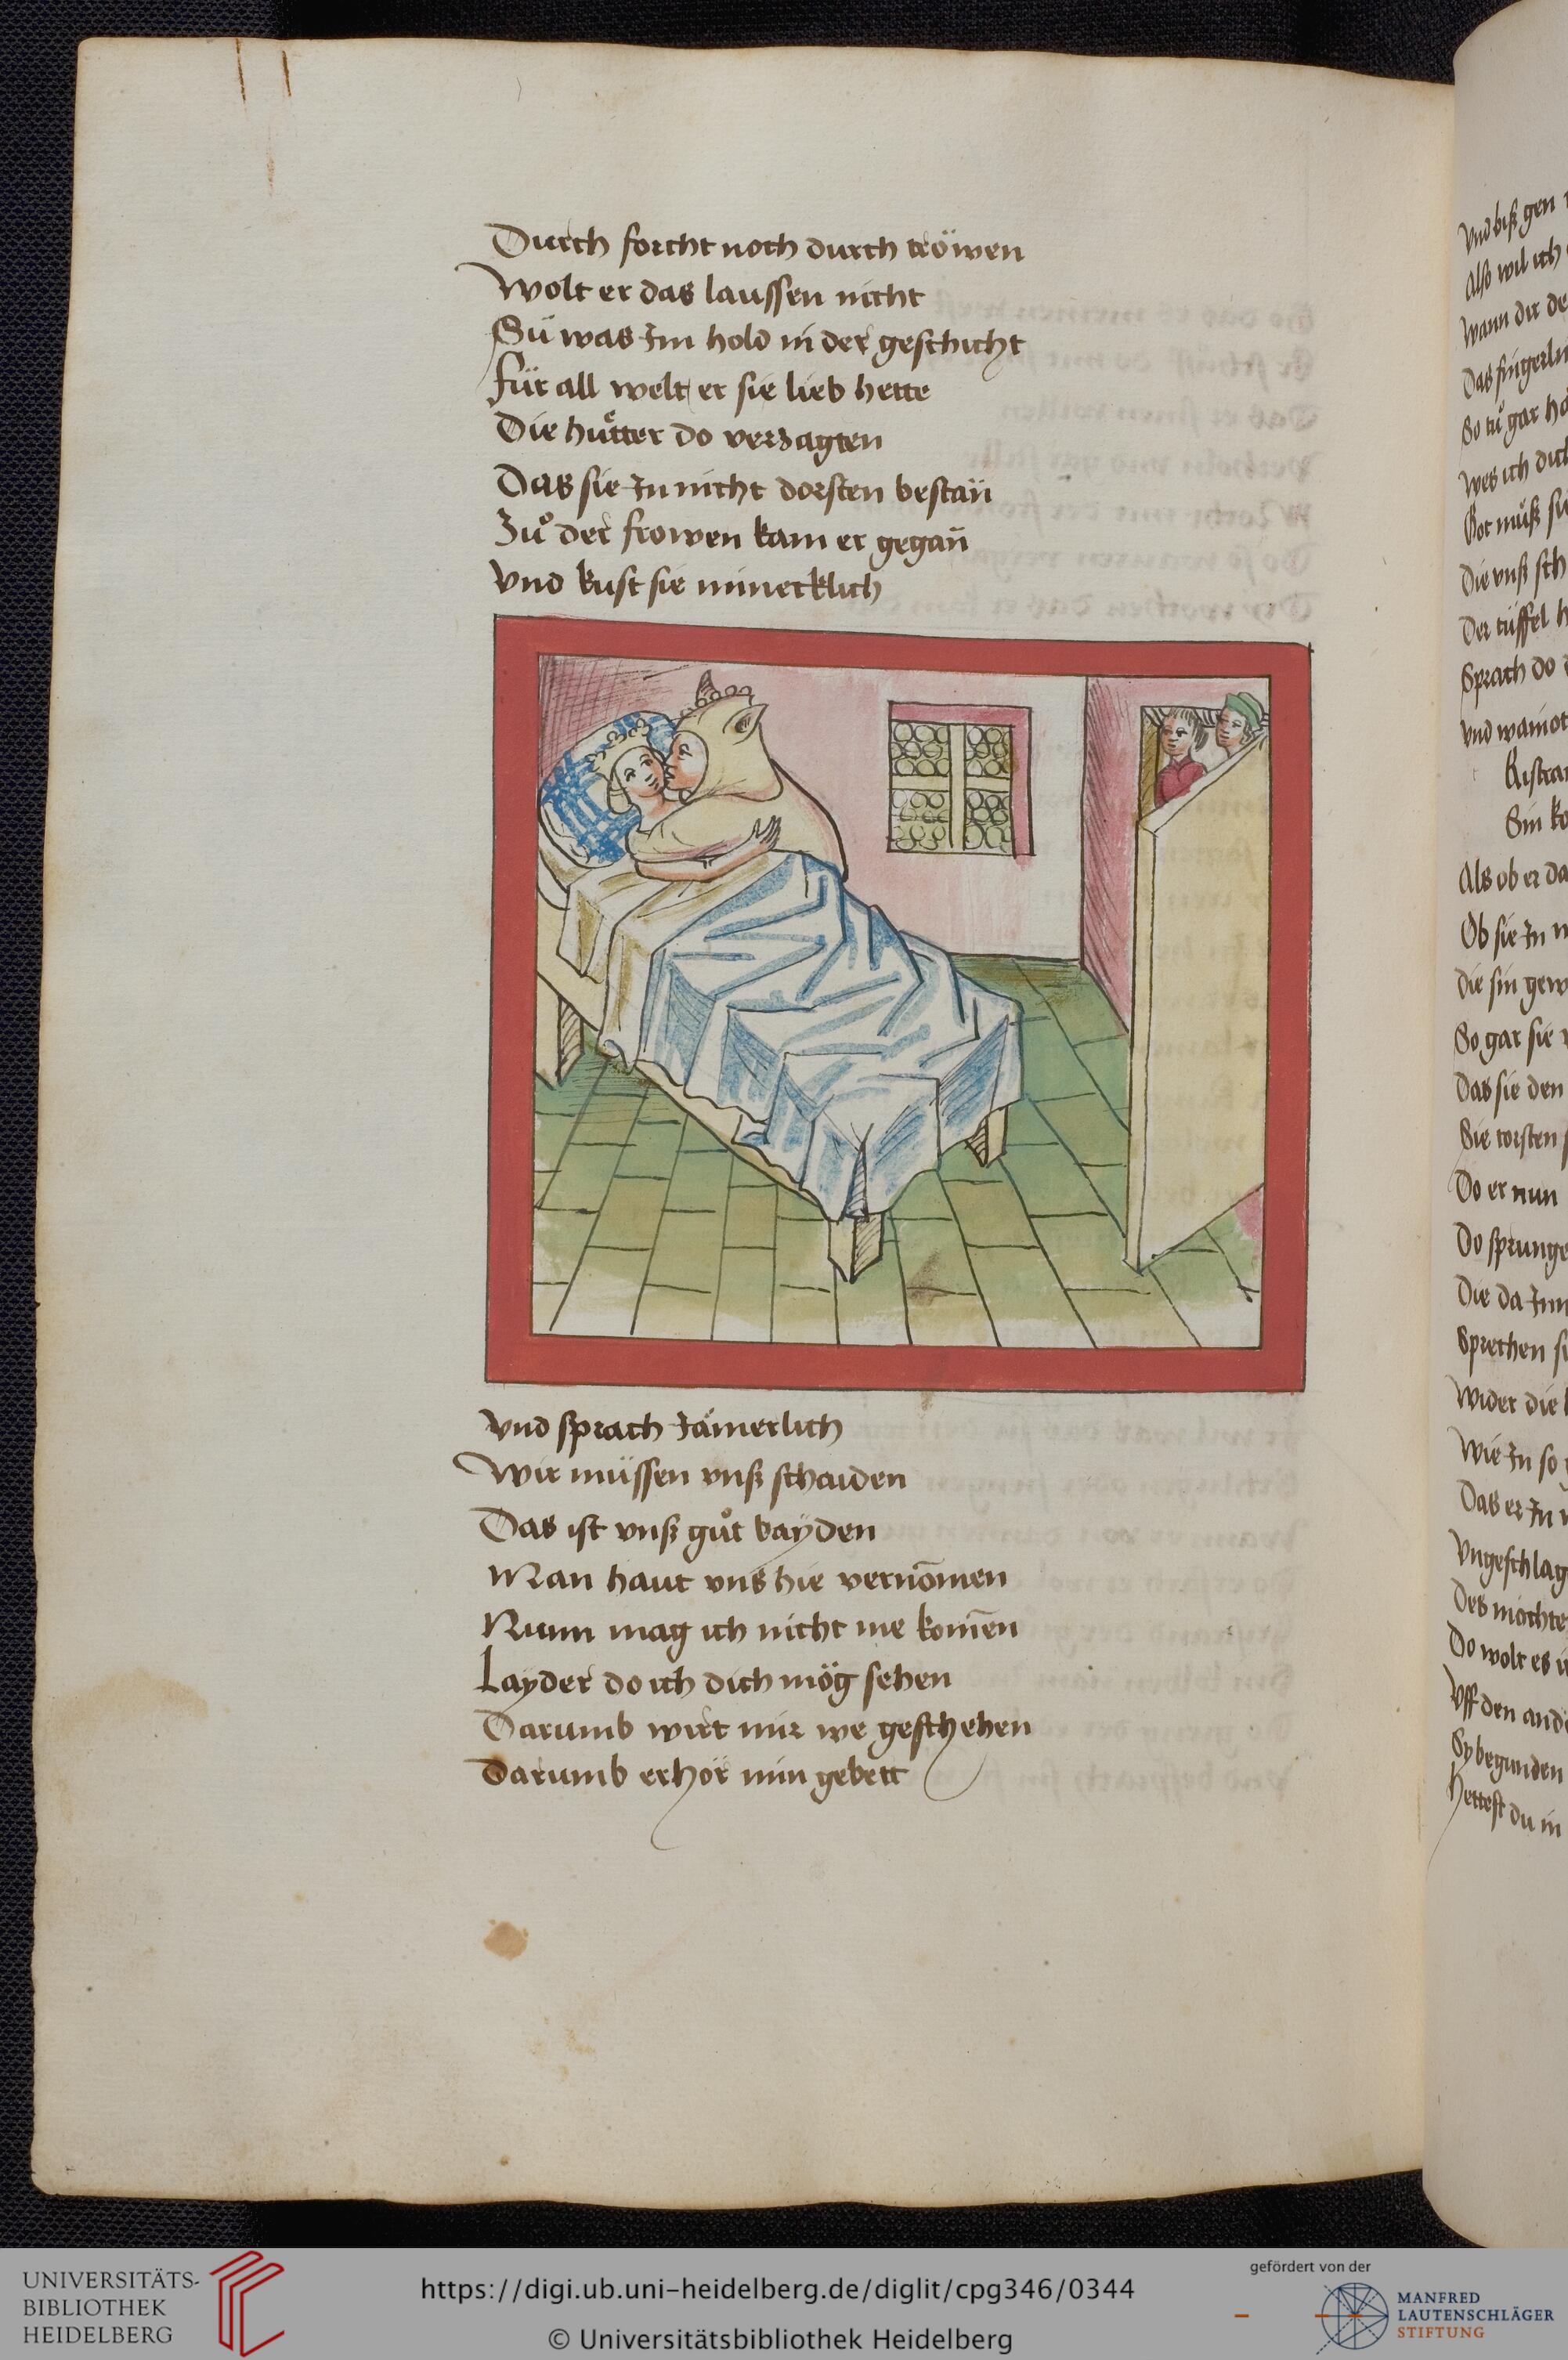 Durch forcht noch durch tröwen
Wolt er das laussen nicht
Sü was Im hold in der geschicht
Für all welt er sie lieb hette
Die huͤtter do verzagten
Das sie In nicht dorsten bestan̄
Zuͦ der frowen kam er gegan̄
Vnd kust sie minecklich
Vnd sprach Jämerlich
Wir müssen vnß schaiden
Das ist vnß guͦt bayden
Man haut vns hie vernōmen
Nunn mag ich nicht me komēn
Layder do ich dich mög sehen
Darumb wirt mir we geschehen
Darumb erhör min gebett
Vnd biß gen
Also wil ich
Wann dir de
Das fingerlin
So tuͦ gar
Wes ich dich
Got muͦß sie
Die vnß sch
Der tüffel h
Sprach do
Vnd wainot
Als ob er da
Ob sie In
Die sin gew
So gar sie
Das sie den
Sie torsten
Do er nun
Do sprunge
Die da Inn
Sprechen si
Wider die
Wie In so
Das er In
Vngeschlag
Des möchte
Do wolt es
Vff den and
Sy begunden
Hettest du in
UNIVERSITÄTS-
BIBLIOTHEK
HEIDELBERG
https://digi.ub.uni-heidelberg.de/diglit/cpg346/0344
© Universitätsbibliothek Heidelberg
gefördert von der
MANFRED
LAUTENSCHLÄGER
STIFTUNG